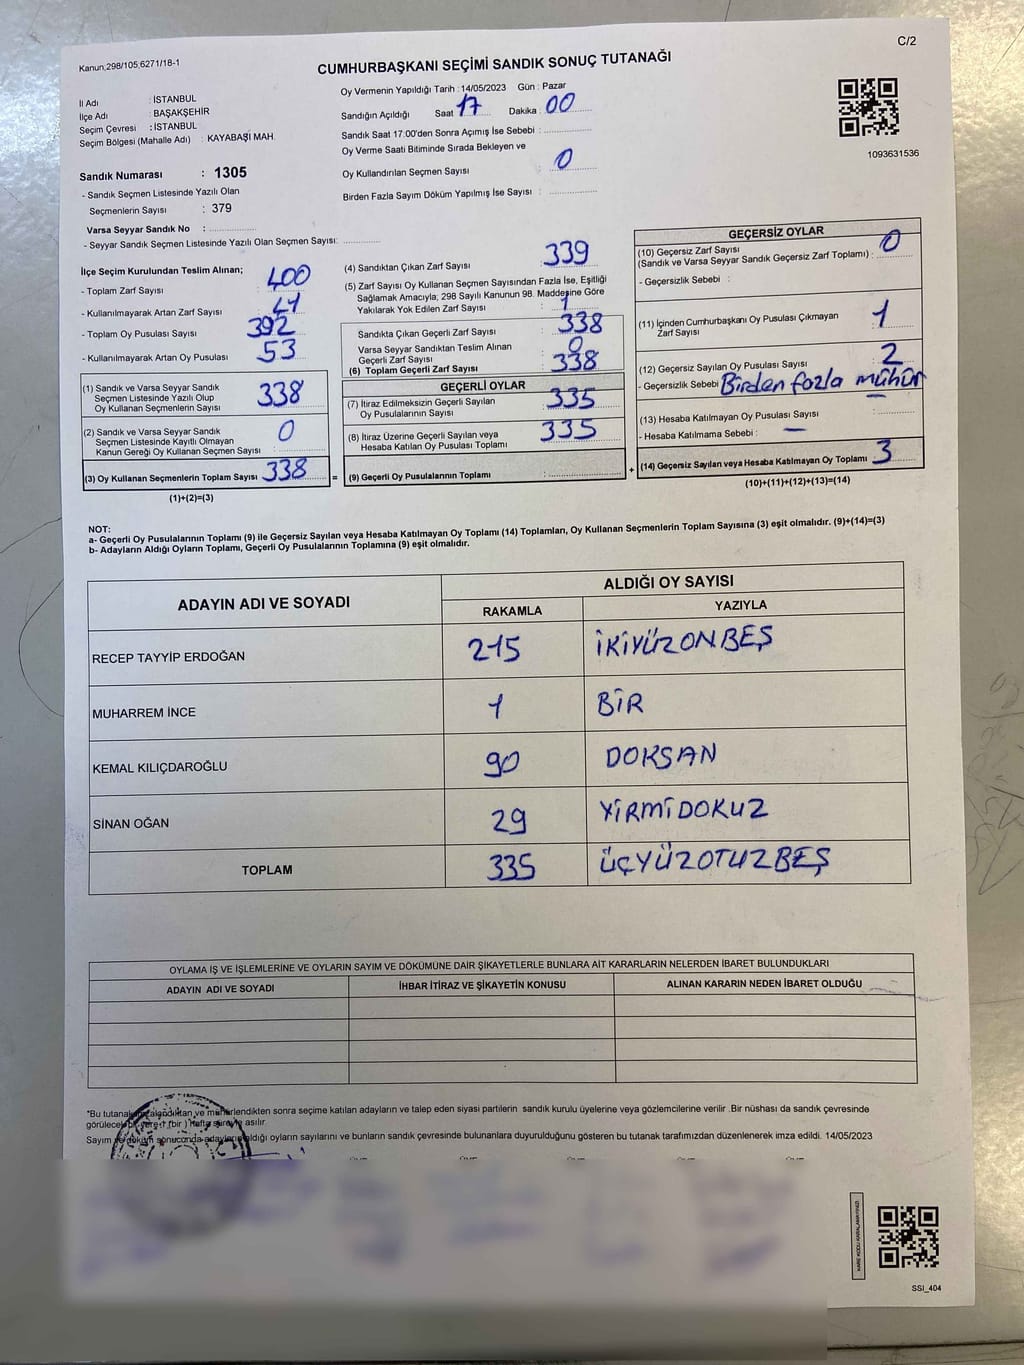 C/2
Kanun,298/105,6271/18-1
CUMHURBAŞKANI SEÇİMİ SANDIK SONUÇ TUTANAĞI
İl Adı : İSTANBUL
İlçe Adı : BAŞAKŞEHİR
Seçim Çevresi : İSTANBUL
Seçim Bölgesi (Mahalle Adı) : KAYABAŞI MAH.
Oy Vermenin Yapıldığı Tarih : 14/05/2023 Gün : Pazar
Sandığın Açıldığı Saat 17 Dakika : 00
Sandık Saat 17:00'den Sonra Açımış İse Sebebi :
Oy Verme Saati Bitiminde Sırada Bekleyen ve
Oy Kullandırılan Seçmen Sayısı : 0
Birden Fazla Sayım Döküm Yapılmış İse Sayısı :
1093631536
Sandık Numarası : 1305
- Sandık Seçmen Listesinde Yazılı Olan
Seçmenlerin Sayısı : 379
Varsa Seyyar Sandık No :
- Seyyar Sandık Seçmen Listesinde Yazılı Olan Seçmen Sayısı:
İlçe Seçim Kurulundan Teslim Alınan;
- Toplam Zarf Sayısı 400
- Kullanılmayarak Artan Zarf Sayısı
- Toplam Oy Pusulası Sayısı 392
- Kullanılmayarak Artan Oy Pusulası 53
(1) Sandık ve Varsa Seyyar Sandık
Seçmen Listesinde Yazılı Olup
Oy Kullanan Seçmenlerin Sayısı 338
(2) Sandık ve Varsa Seyyar Sandık
Seçmen Listesinde Kayıtlı Olmayan
Kanun Gereği Oy Kullanan Seçmen Sayısı : 0
(3) Oy Kullanan Seçmenlerin Toplam Sayısı 338 =
(1)+(2)=(3)
(4) Sandıktan Çıkan Zarf Sayısı 339
(5) Zarf Sayısı Oy Kullanan Seçmen Sayısından Fazla İse, Eşitliği
Sağlamak Amacıyla; 298 Sayılı Kanunun 98. Maddesine Göre
Yakılarak Yok Edilen Zarf Sayısı : 1
Sandıkta Çıkan Geçerli Zarf Sayısı : 338
Varsa Seyyar Sandıktan Teslim Alınan
Geçerli Zarf Sayısı : 0
(6) Toplam Geçerli Zarf Sayısı : 338
GEÇERLİ OYLAR
(7) İtiraz Edilmeksizin Geçerli Sayılan
Oy Pusulalarının Sayısı : 335
(8) İtiraz Üzerine Geçerli Sayılan veya
Hesaba Katılan Oy Pusulası Toplamı 335
(9) Geçerli Oy Pusulalarının Toplamı : +
GEÇERSİZ OYLAR
(10) Geçersiz Zarf Sayısı
(Sandık ve Varsa Seyyar Sandık Geçersiz Zarf Toplamı) : 0
- Geçersizlik Sebebi :
(11) İçinden Cumhurbaşkanı Oy Pusulası Çıkmayan
Zarf Sayısı : 1
(12) Geçersiz Sayılan Oy Pusulası Sayısı : 2
- Geçersizlik Sebebi Birden fazla mühür
(13) Hesaba Katılmayan Oy Pusulası Sayısı :
- Hesaba Katılmama Sebebi : —
(14) Geçersiz Sayılan veya Hesaba Katılmayan Oy Toplamı : 3
(10)+(11)+(12)+(13)=(14)
NOT:
a- Geçerli Oy Pusulalarının Toplamı (9) ile Geçersiz Sayılan veya Hesaba Katılmayan Oy Toplamı (14) Toplamları, Oy Kullanan Seçmenlerin Toplam Sayısına (3) eşit olmalıdır. (9)+(14)=(3)
b- Adayların Aldığı Oyların Toplamı, Geçerli Oy Pusulalarının Toplamına (9) eşit olmalıdır.
ADAYIN ADI VE SOYADI
ALDIĞI OY SAYISI
RAKAMLA YAZIYLA
RECEP TAYYİP ERDOĞAN 215 İKİYÜZONBEŞ
MUHARREM İNCE 1 BİR
KEMAL KILIÇDAROĞLU 90 DOKSAN
SİNAN OĞAN 29 YİRMİDOKUZ
TOPLAM 335 ÜÇYÜZOTUZBEŞ
OYLAMA İŞ VE İŞLEMLERİNE VE OYLARIN SAYIM VE DÖKÜMÜNE DAİR ŞİKAYETLERLE BUNLARA AİT KARARLARIN NELERDEN İBARET BULUNDUKLARI
ADAYIN ADI VE SOYADI İHBAR İTİRAZ VE ŞİKAYETİN KONUSU ALINAN KARARIN NEDEN İBARET OLDUĞU
*Bu tutanak imzalandıktan ve mühürlendikten sonra seçime katılan adayların ve talep eden siyasi partilerin sandık kurulu üyelerine veya gözlemcilerine verilir .Bir nüshası da sandık çevresinde
görülecek bir yere 1 (bir ) hafta süreyle asılır.
Sayım ve döküm sonucunda adayların aldığı oyların sayılarını ve bunların sandık çevresinde bulunanlara duyurulduğunu gösteren bu tutanak tarafımızdan düzenlenerek imza edildi. 14/05/2023
SSI_404